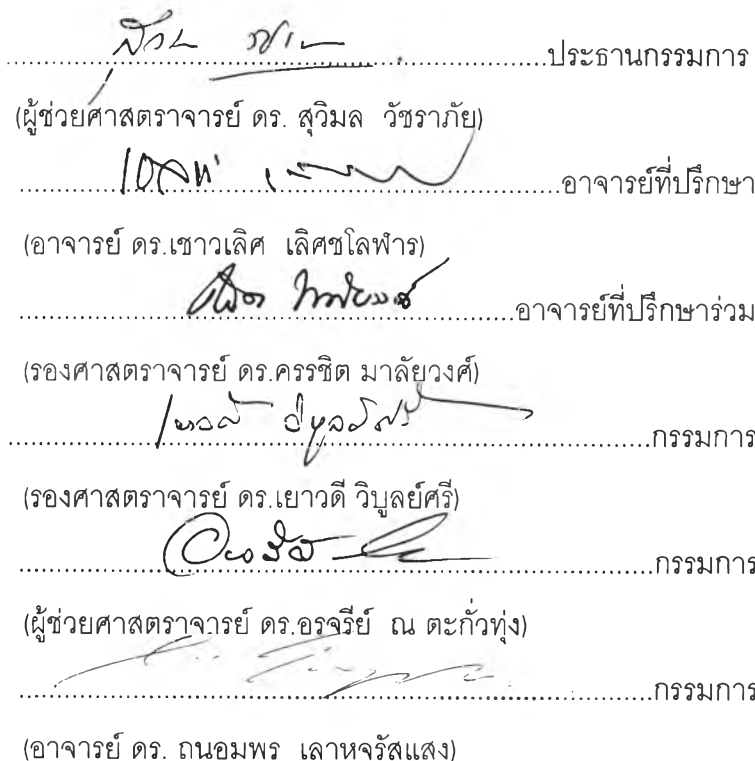 ประธานกรรมการ
(ผู้ช่วยศาสตราจารย์ ดร. สุวิมล วัชราภัย)
อาจารย์ที่ปรึกษา
(อาจารย์ ดร.เชาวเลิศ เลิศชโลฬาร)
อาจารย์ที่ปรึกษาร่วม
(รองศาสตราจารย์ ดร.ครรชิต มาลัยวงศ์)
กรรมการ
(รองศาสตราจารย์ ดร.เยาวดี วิบูลย์ศรี)
กรรมการ
(ผู้ช่วยศาสตราจารย์ ดร.อรจรีย์ ณ ตะกั่วทุ่ง)
กรรมการ
(อาจารย์ ดร. ถนอมพร เลาหจรัสแสง)